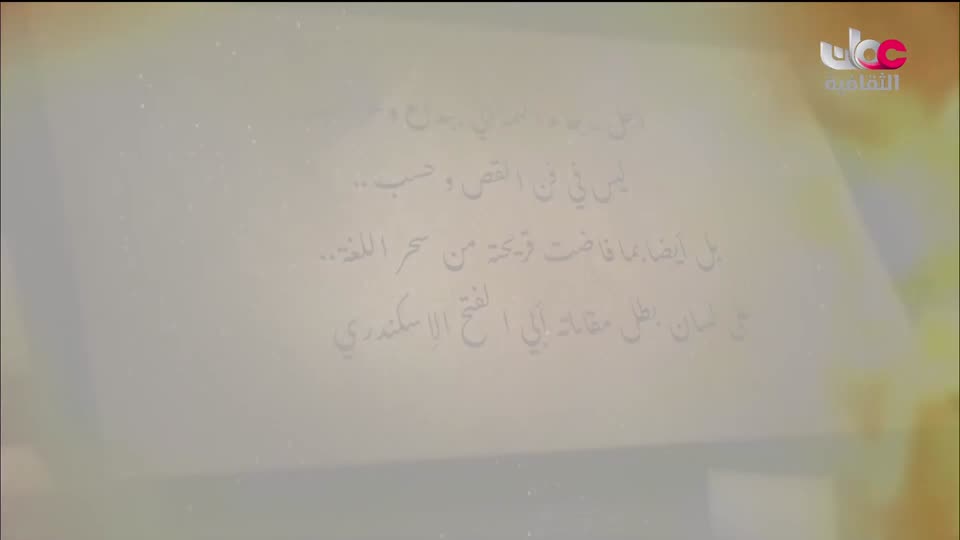 عمان
الثقافية
ليس في فن القص وحسب ..
بل أيضا بما فاضت قريحته من سحر اللغة ..
لسان بطل مقاماته أبي الفتح الإسكندري